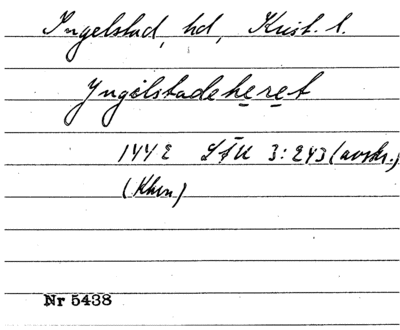 Ingelstad, hd, Krist. l.
Yngelstadeheret
1442 LÅU 3:243 (avskr.)
(Khvn)
Nr 5438